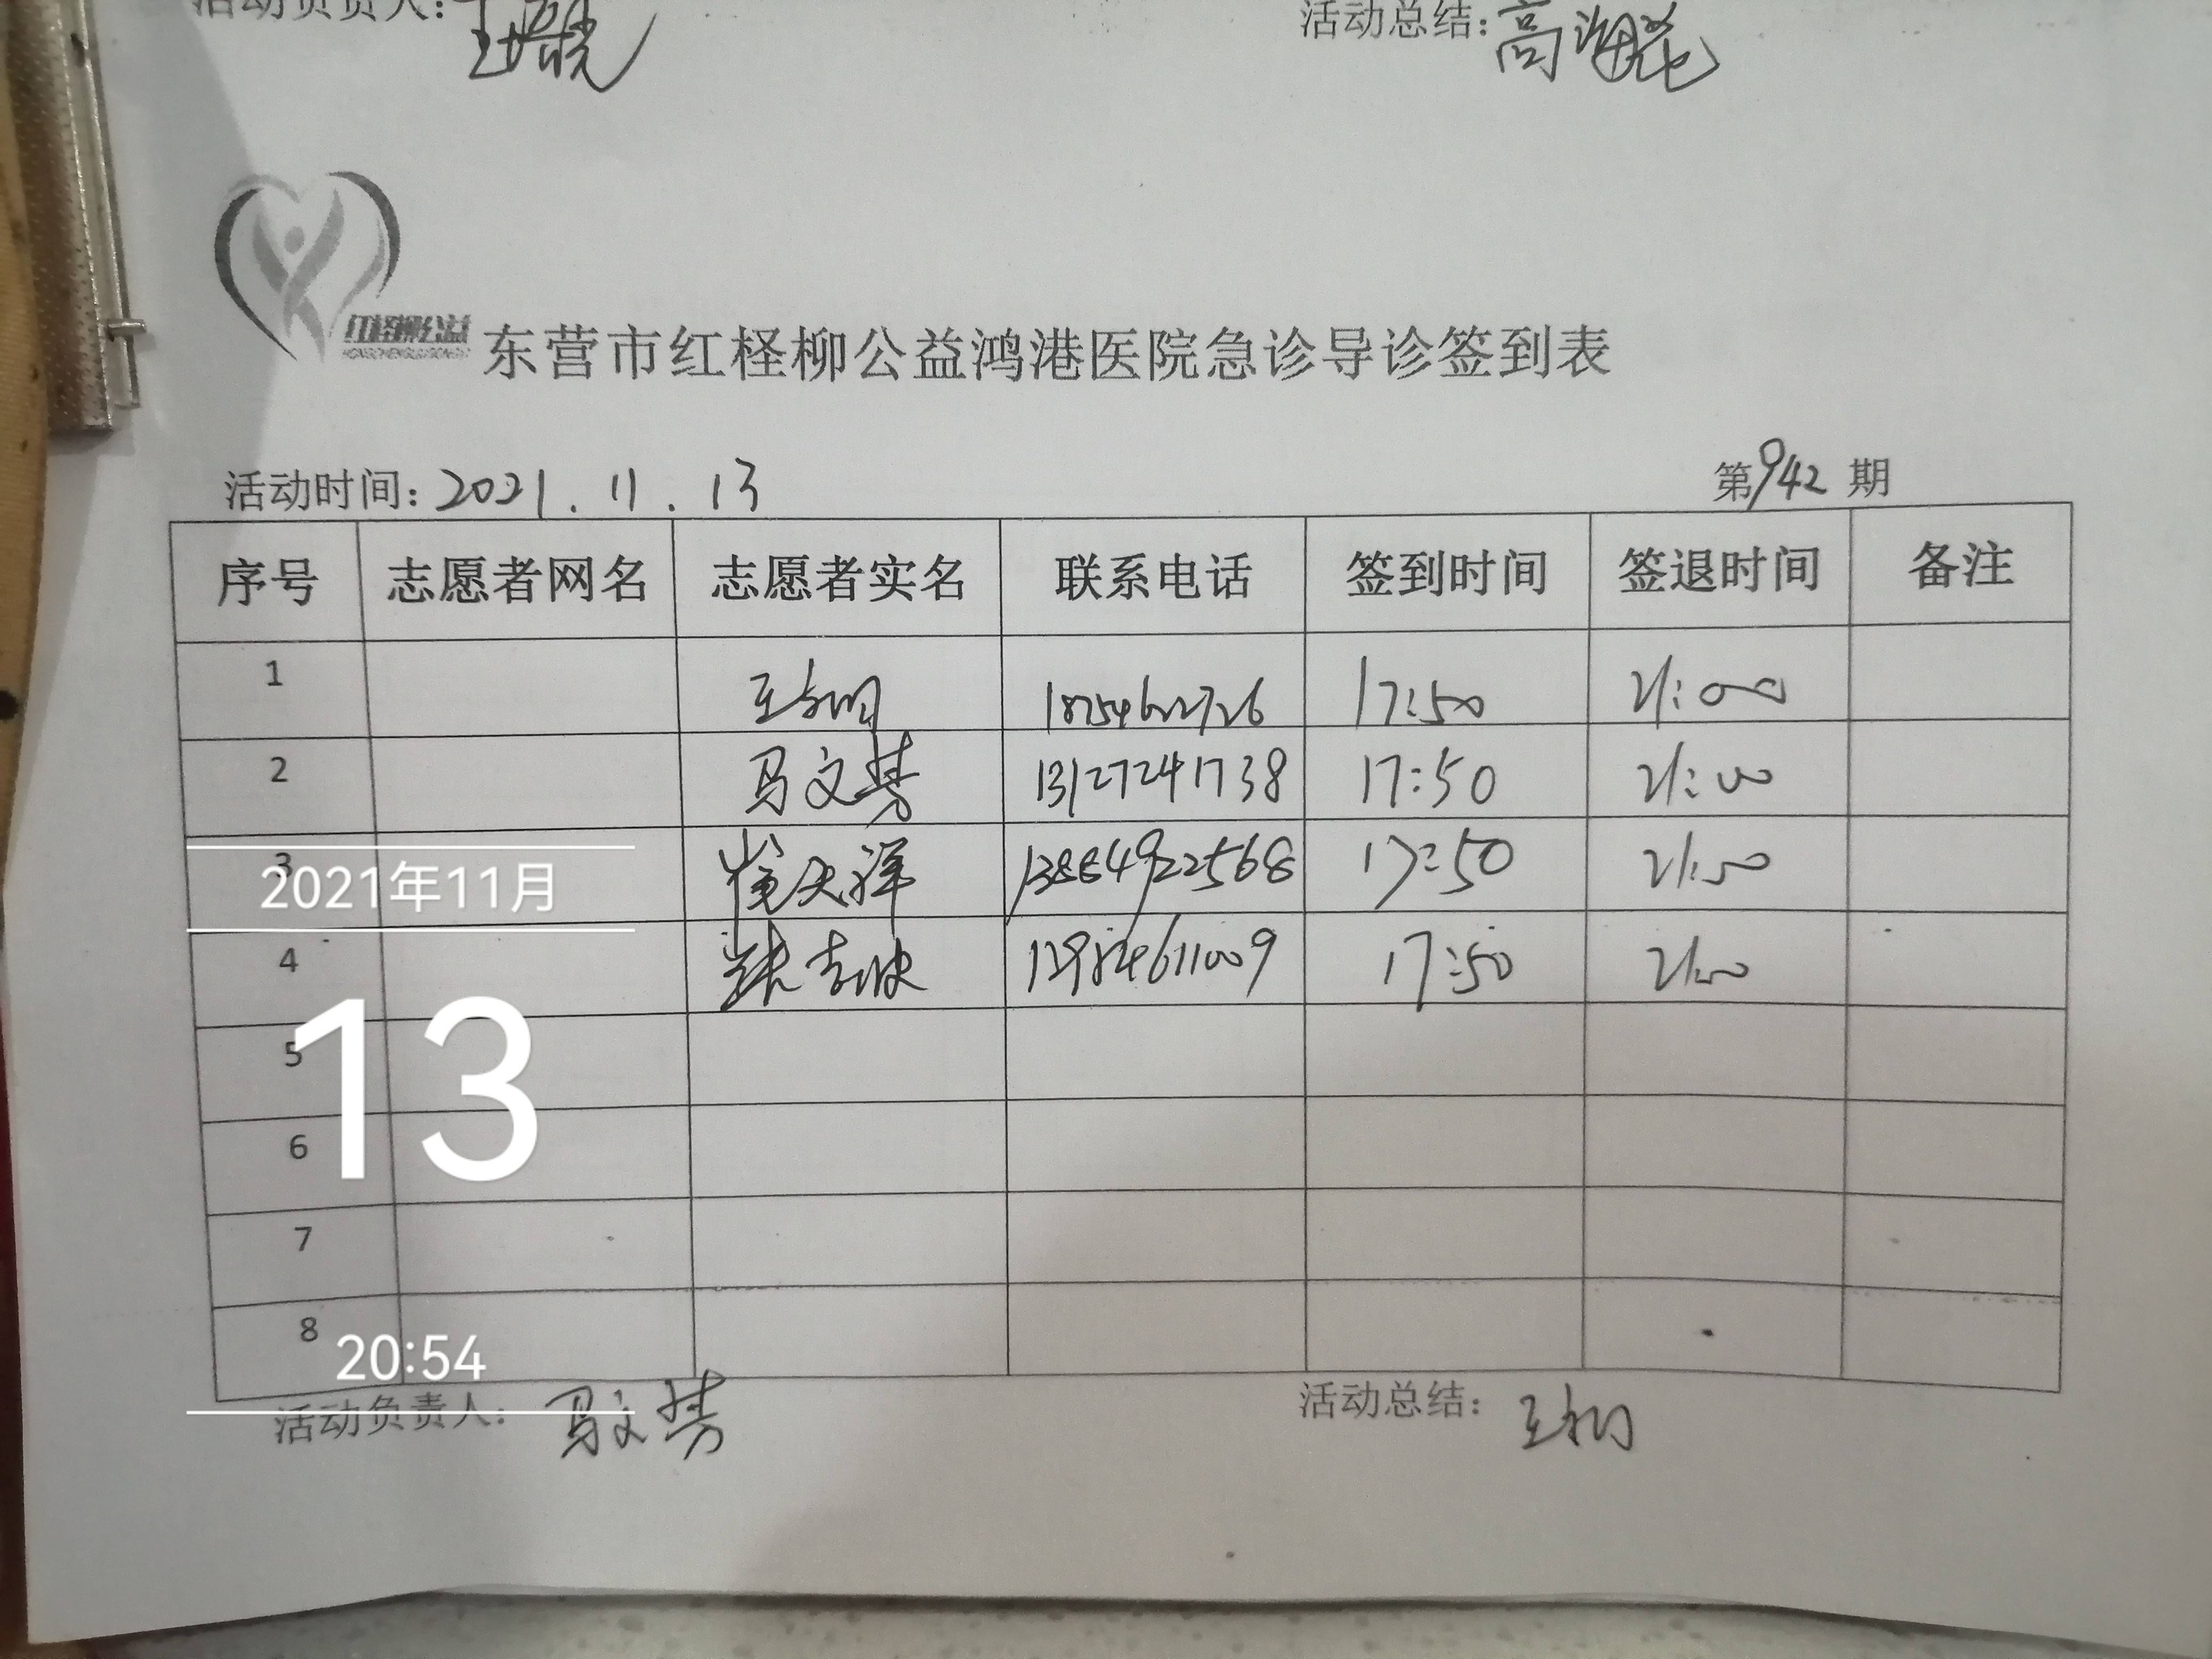 活动负责人：
活动总结：高
红柽柳公益
东营市红柽柳公益鸿港医院急诊导诊签到表
活动时间：2021.11.13
第942期
序号 志愿者网名 志愿者实名 联系电话 签到时间 签退时间 备注
1 王 17:50 21:00
2 马文 13127241738 17:50 21:00
3 崔天祥 13884922568 17:50 21:00
4 17:50 21:00
5
6
7
8
2021年11月
13
20:54
活动负责人：马文
活动总结：王